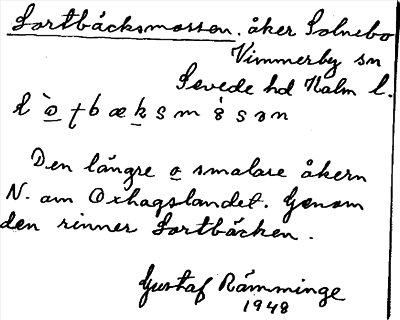 Lortbäcksmossen. åker Solnebo
Vimmerby sn
Sevede hd Kalm l.
Den längre o smalare åkern
N. om Oxhagslandet. Genom
den rinner Lortbäcken.
Gustaf Rämminge
1948